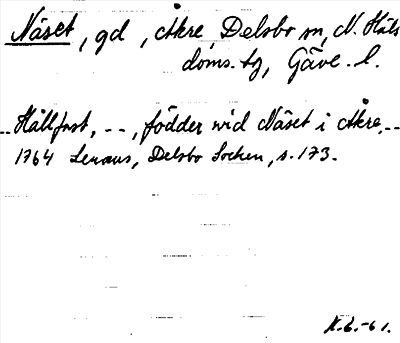 Näset, gd, Åkre, Delsbo sn, N. Häls
doms. tg, Gävle. l.
--Hållfast, --, födder wid Näset i Åkre,--
1764 Lenæus, Delsbo Socken, s. 173.
K.L.-61.